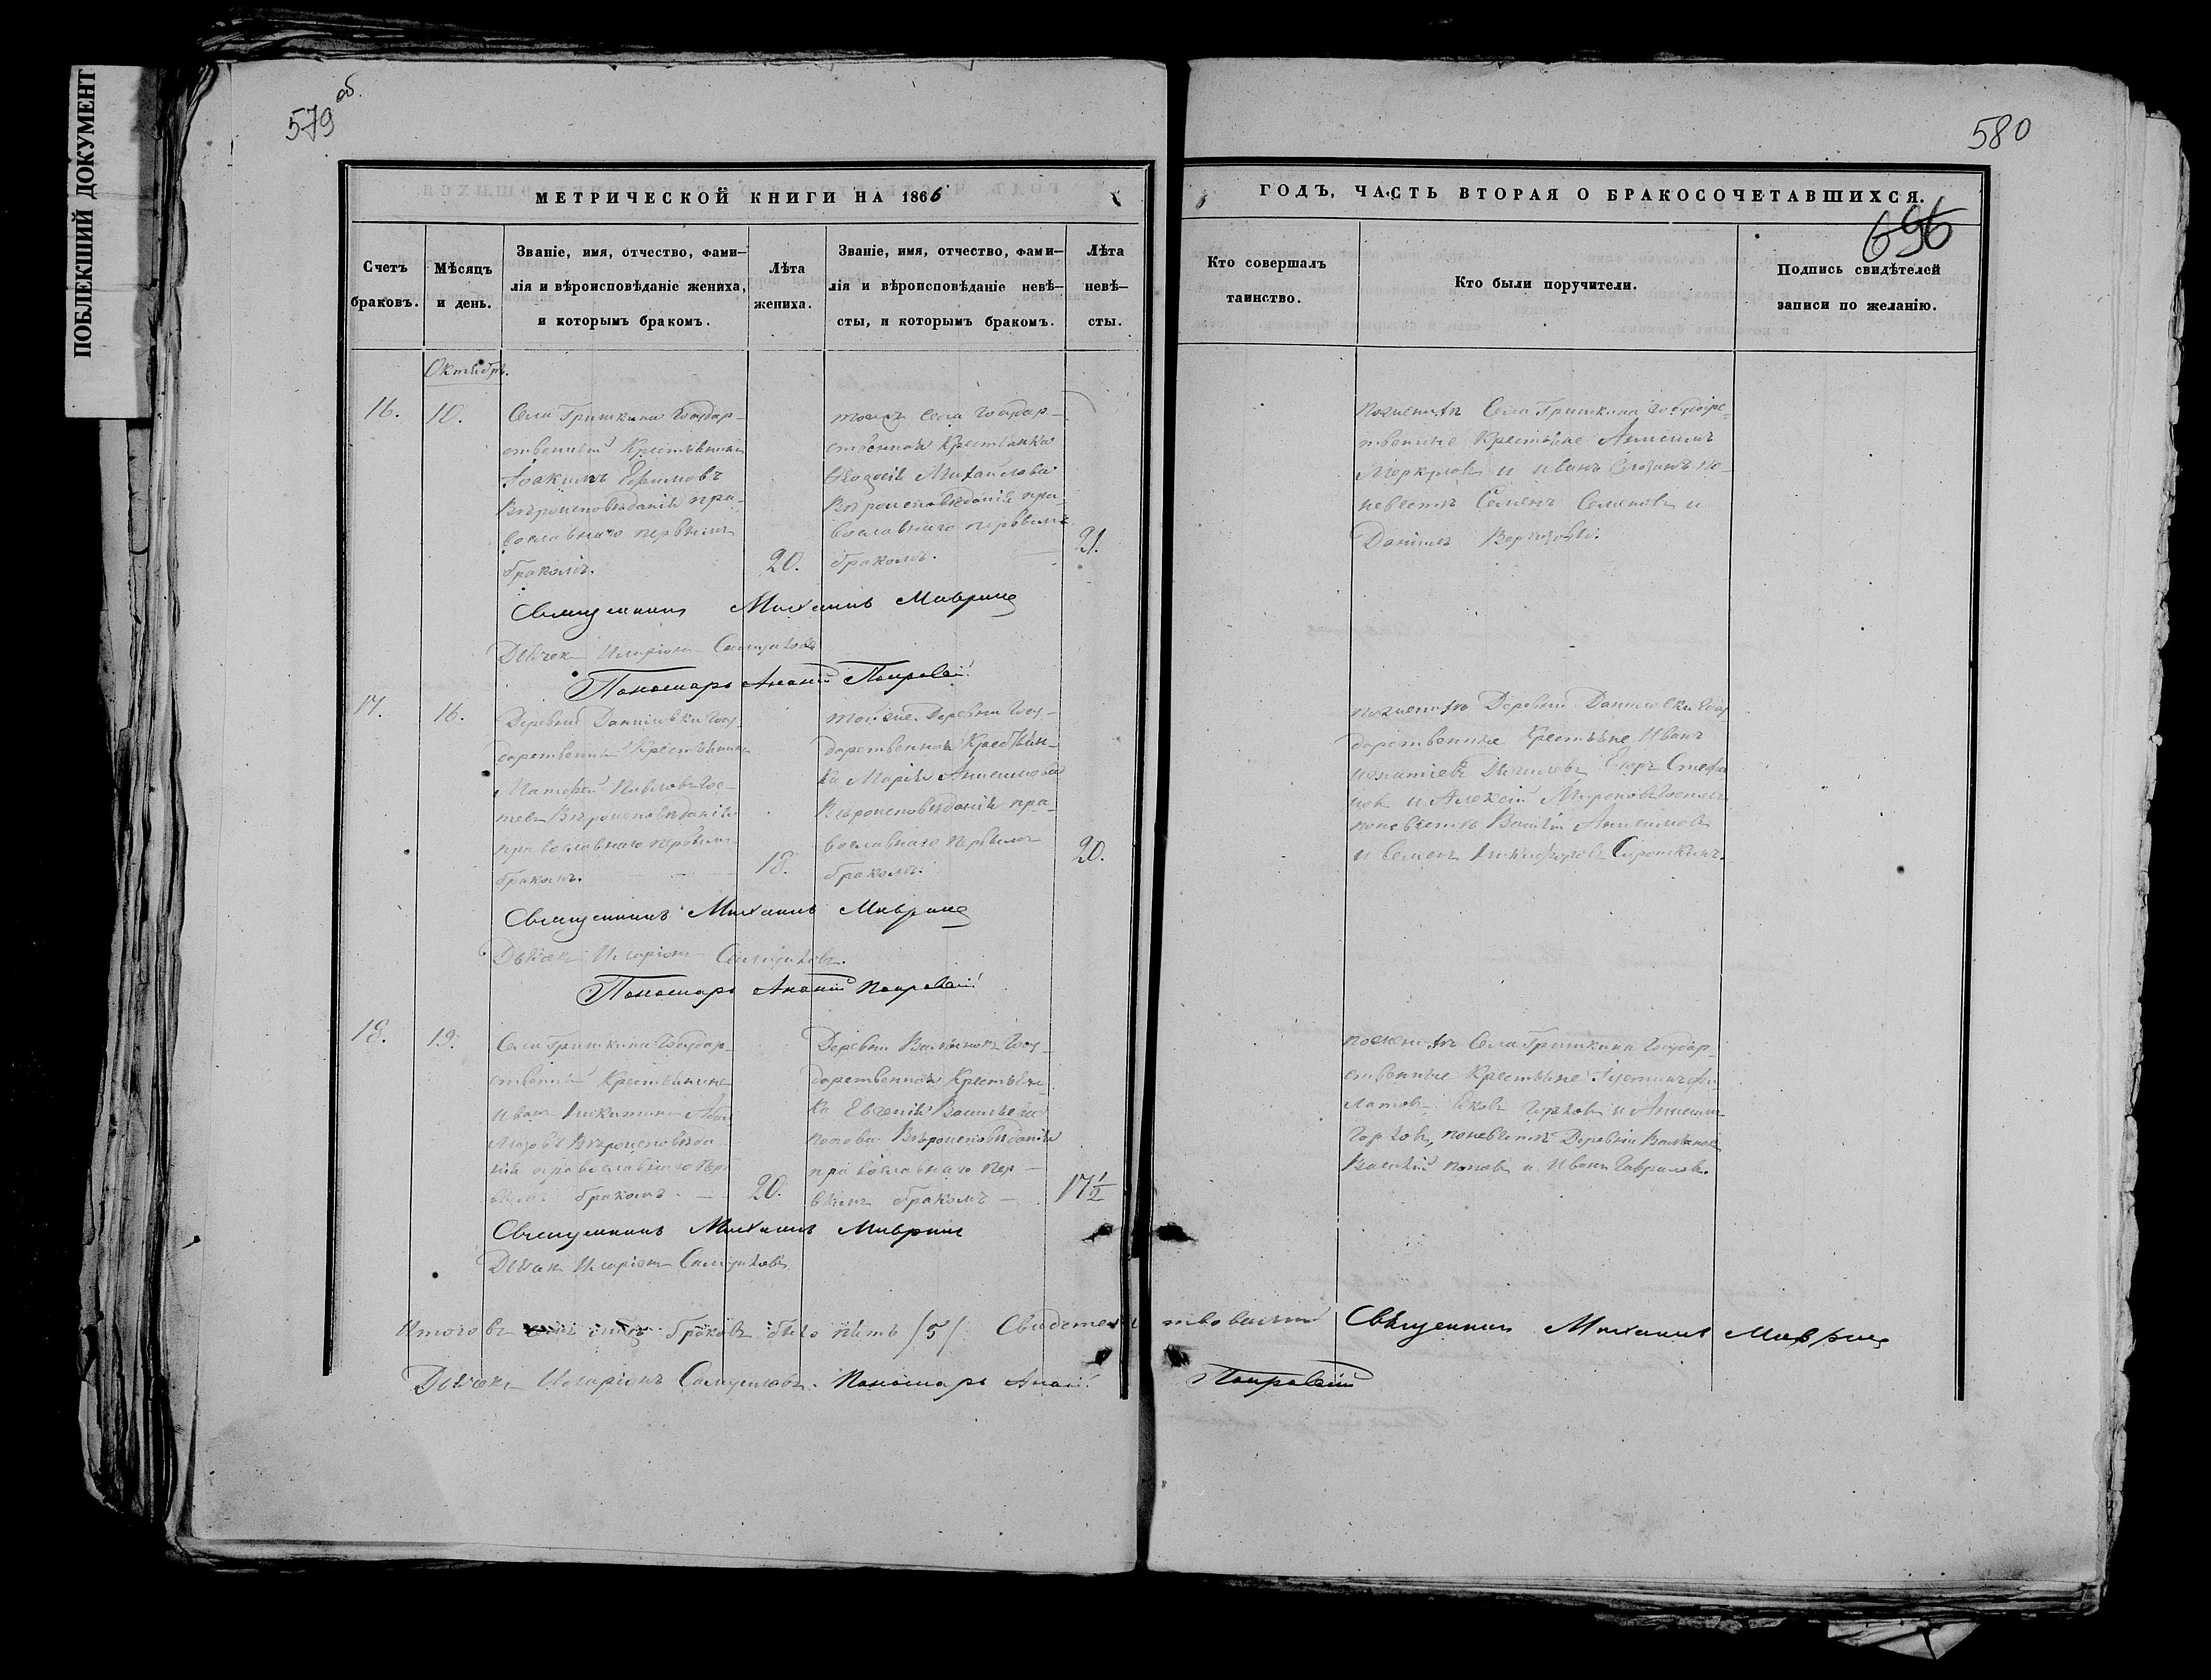 ПОБЛЕКШИЙ ДОКУМЕНТ
579 об.
580
МЕТРИЧЕСКОЙ КНИГИ НА 1866
ГОДЪ, ЧАСТЬ ВТОРАЯ О БРАКОСОЧЕТАВШИХСЯ.
696
Счетъ браковъ.
Мѣсяцъ и день.
Званіе, имя, отчество, фами-
лія и вѣроисповѣданіе жениха,
и которымъ бракомъ.
Лѣта жениха.
Званіе, имя, отчество, фами-
лія и вѣроисповѣданіе невѣ-
сты, и которымъ бракомъ.
Лѣта невѣ-
сты.
Кто совершалъ
таинство.
Кто были поручители.
Подпись свидѣтелей
записи по желанію.
Октябрь.
16.
10.
Села Гришкина Государ-
ственный Крестьянинъ
Іоакимъ Ефимовъ
Вѣроисповѣданія пра-
вославнаго первымъ
бракомъ.
20.
тогожъ села Государ-
ственная Крестьянка
Михайлова
Вѣроисповѣданія пра-
вославнаго первымъ
бракомъ.
21.
по женихѣ Села Гришкина Государ-
ственные Крестьяне Анисимъ
Меркуловъ и Иванъ по
невѣстѣ Семенъ Семеновъ и
Данилъ
Священникъ Михаилъ Мавринъ
Дьячекъ Иларіонъ
Пономарь Ананій
17.
16.
Деревни Даниловки Госу-
дарственный Крестьянинъ
Матвей Павловъ
Вѣроисповѣданія
православнаго первымъ
бракомъ.
18.
тойже Деревни Госу-
дарственная Крестьян-
ка Марія Анисимова
Вѣроисповѣданія пра-
вославнаго первымъ
бракомъ.
20.
по женихѣ Деревни Даниловки Госу
дарственные Крестьяне Иванъ
Игнатіевъ Егоръ Стефа
новъ и Алексій Мироновъ
по невѣстѣ Василій Анисимовъ
и Семенъ Никифоровъ Сироткинъ.
Священникъ Михаилъ Мавринъ
Дьячекъ Иларіонъ
Пономарь Ананій
18.
19.
Села Гришкина Государ-
ственный Крестьянинъ
Иванъ Никитинъ
Вѣроисповѣда
нія православнаго пер
вымъ бракомъ.
20.
Деревни Госу-
дарственная Крестьян-
ка Евгенія Васильева
Попова Вѣроисповѣданія
православнаго пер-
вымъ бракомъ
17 1/2
по женихѣ Села Гришкина Государ-
ственные Крестьяне Іустинъ Фи
латовъ, и Анисимъ
по невѣстѣ Деревни
Василій Поповъ и Иванъ Гавриловъ.
Священникъ Михаилъ Мавринъ
Дьячекъ Иларіонъ
Итого въ браковъ было пять /5/ Свидетельствовали Священникъ Михаилъ Мавринъ
Дьячекъ Иларіонъ Пономарь Ананій